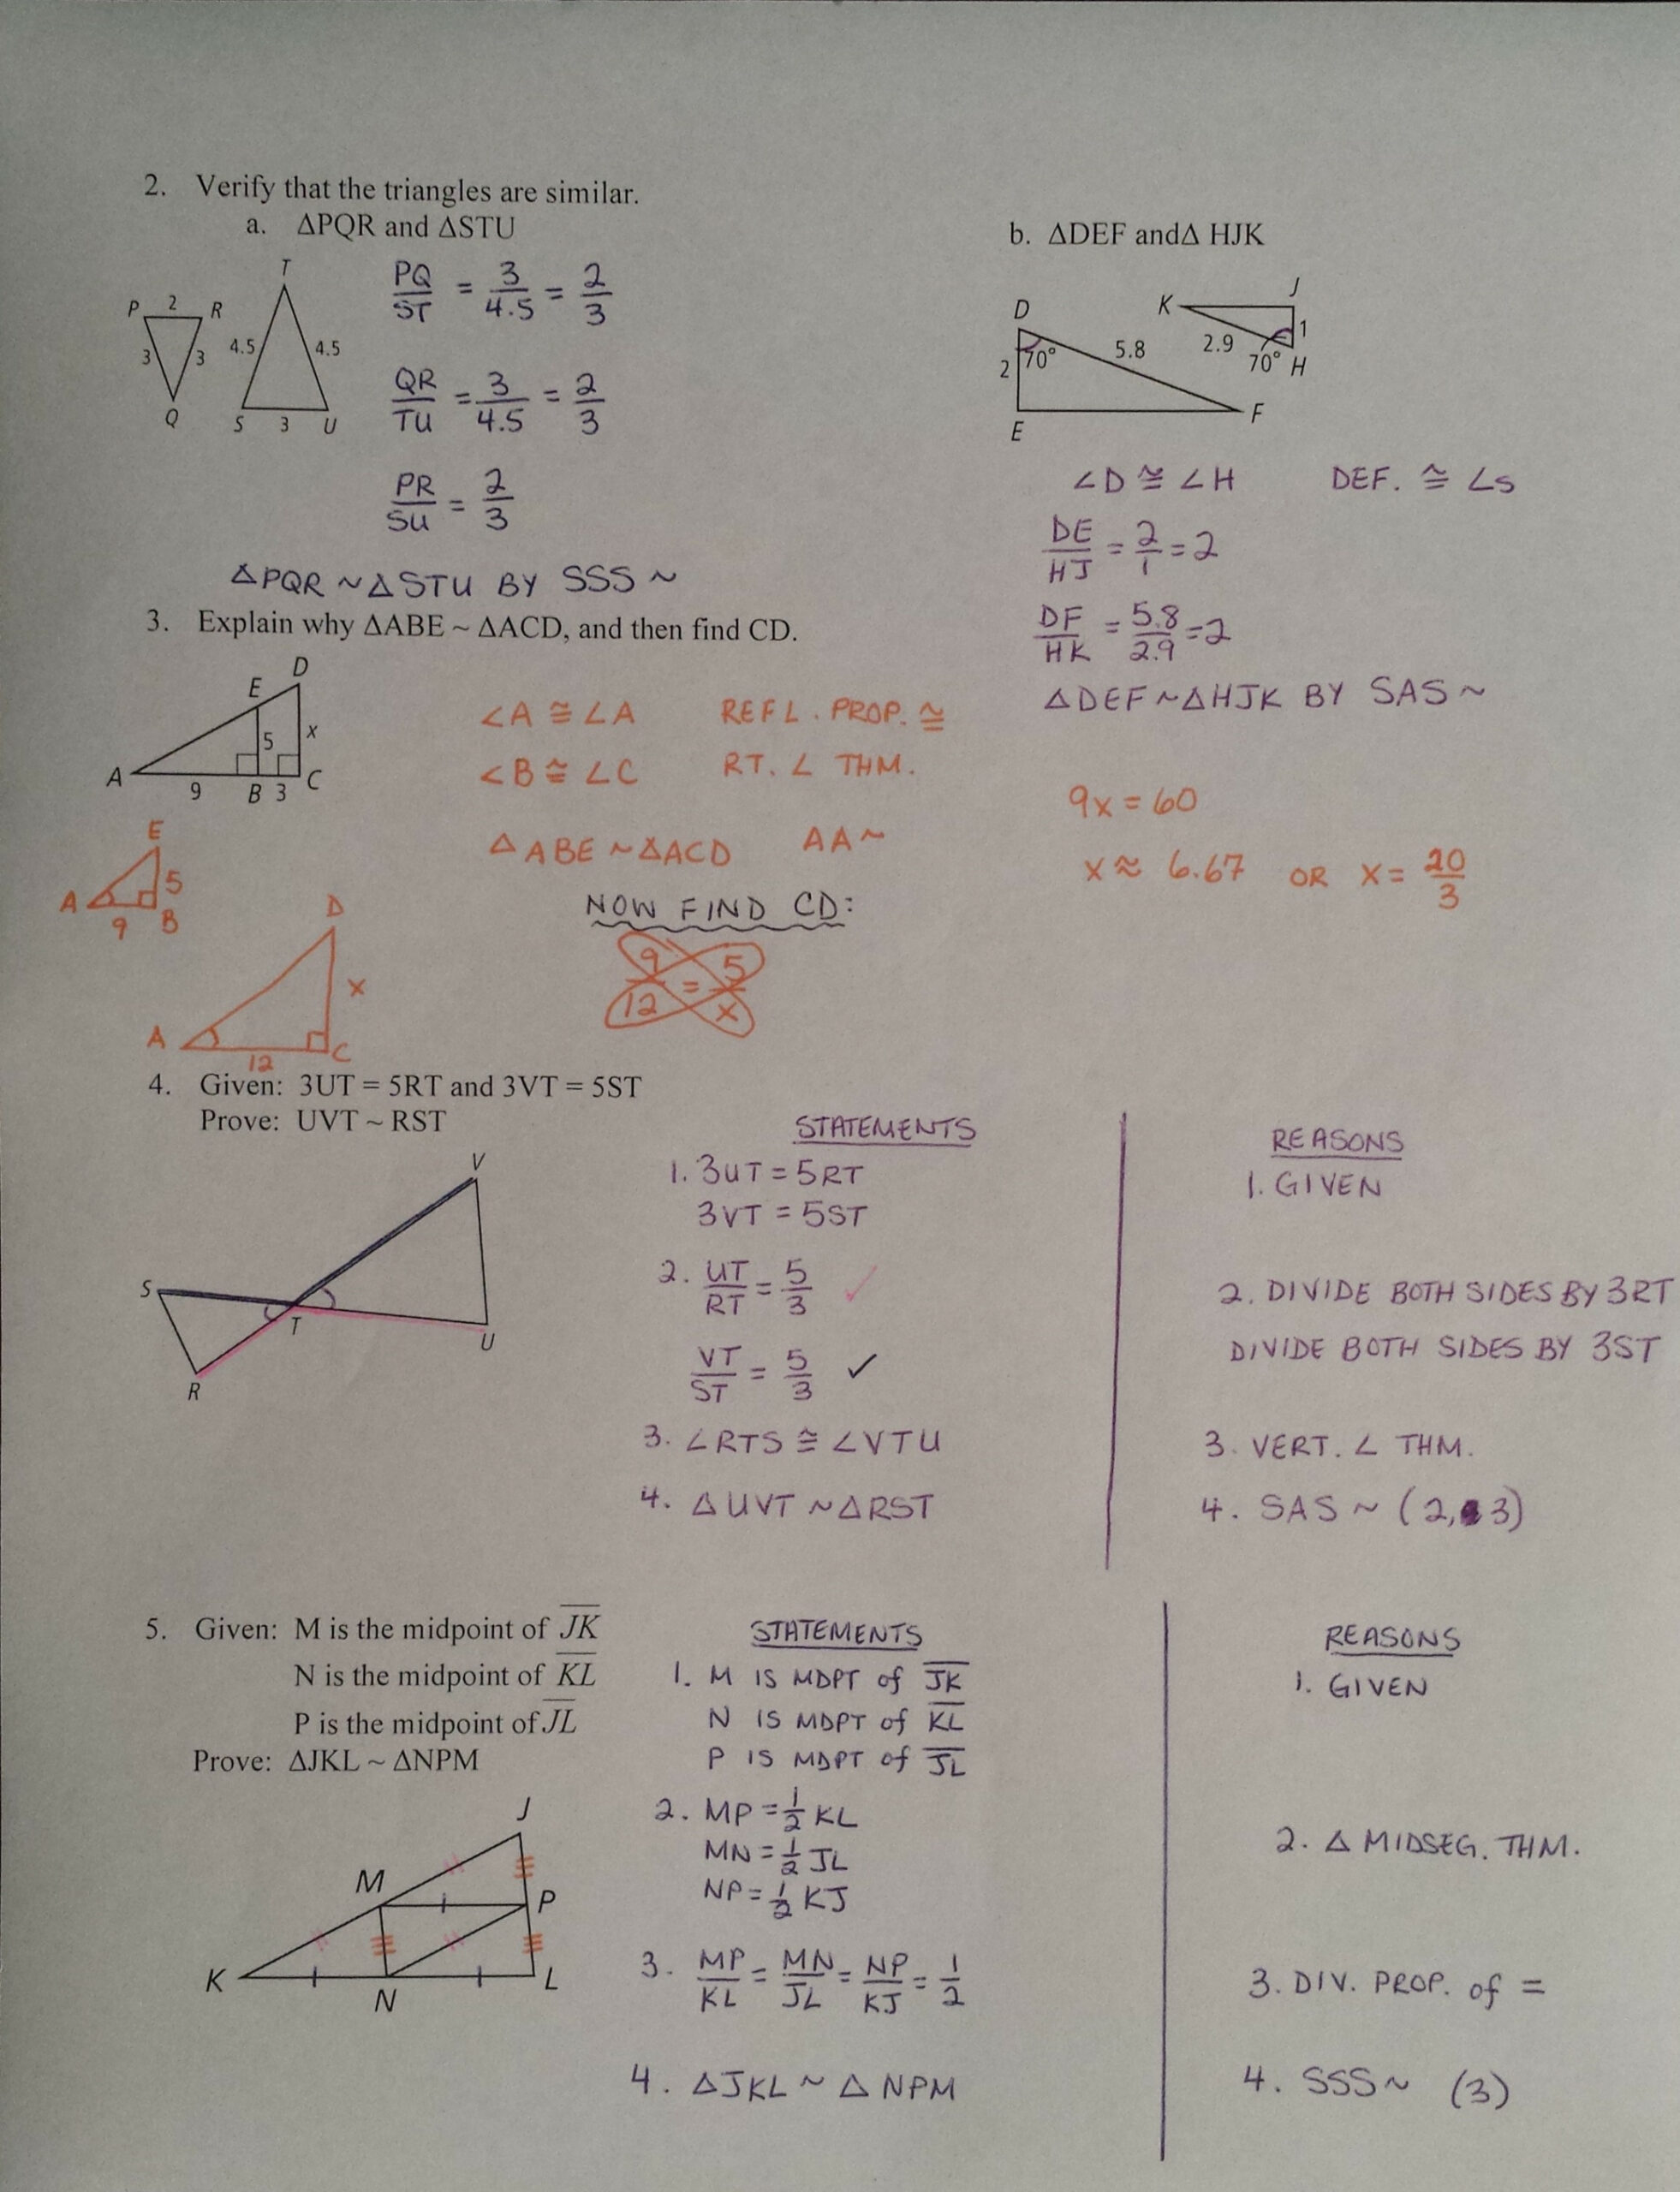 2. Verify that the triangles are similar.
a. ΔPQR and ΔSTU
P 2 R
3 3
Q
T
4.5 4.5
S 3 U
PQ/ST = 3/4.5 = 2/3
QR/TU = 3/4.5 = 2/3
PR/SU = 2/3
ΔPQR ~ ΔSTU BY SSS ~
b. ΔDEF andΔ HJK
D
2 70° 5.8
E F
K J
2.9 1
70° H
∠D ≅ ∠H DEF. ≅ ∠S
DE/HJ = 2/1 = 2
DF/HK = 5.8/2.9 = 2
ΔDEF ~ ΔHJK BY SAS ~
3. Explain why ΔABE ~ ΔACD, and then find CD.
D
E
5 x
A 9 B 3 C
∠A ≅ ∠A REFL. PROP. ≅
∠B ≅ ∠C RT. ∠ THM.
Δ ABE ~ ΔACD AA ~
E
A 5
9 B
D
x
A C
12
NOW FIND CD:
9/12 = 5/x
9x = 60
x ≈ 6.67 OR x = 20/3
4. Given: 3UT = 5RT and 3VT = 5ST
Prove: UVT ~ RST
V
S
T U
R
STATEMENTS REASONS
1. 3UT = 5RT 1. GIVEN
3VT = 5ST
2. UT/RT = 5/3 ✓ 2. DIVIDE BOTH SIDES BY 3RT
VT/ST = 5/3 ✓ DIVIDE BOTH SIDES BY 3ST
3. ∠RTS ≅ ∠VTU 3. VERT. ∠ THM.
4. ΔUVT ~ ΔRST 4. SAS ~ (2, 3)
5. Given: M is the midpoint of JK
N is the midpoint of KL
P is the midpoint of JL
Prove: ΔJKL ~ ΔNPM
J
M P
K N L
STATEMENTS REASONS
1. M IS MDPT of JK 1. GIVEN
N IS MDPT of KL
P IS MDPT of JL
2. MP = 1/2 KL 2. Δ MIDSEG. THM.
MN = 1/2 JL
NP = 1/2 KJ
3. MP/KL = MN/JL = NP/KJ = 1/2 3. DIV. PROP. of =
4. ΔJKL ~ Δ NPM 4. SSS ~ (3)